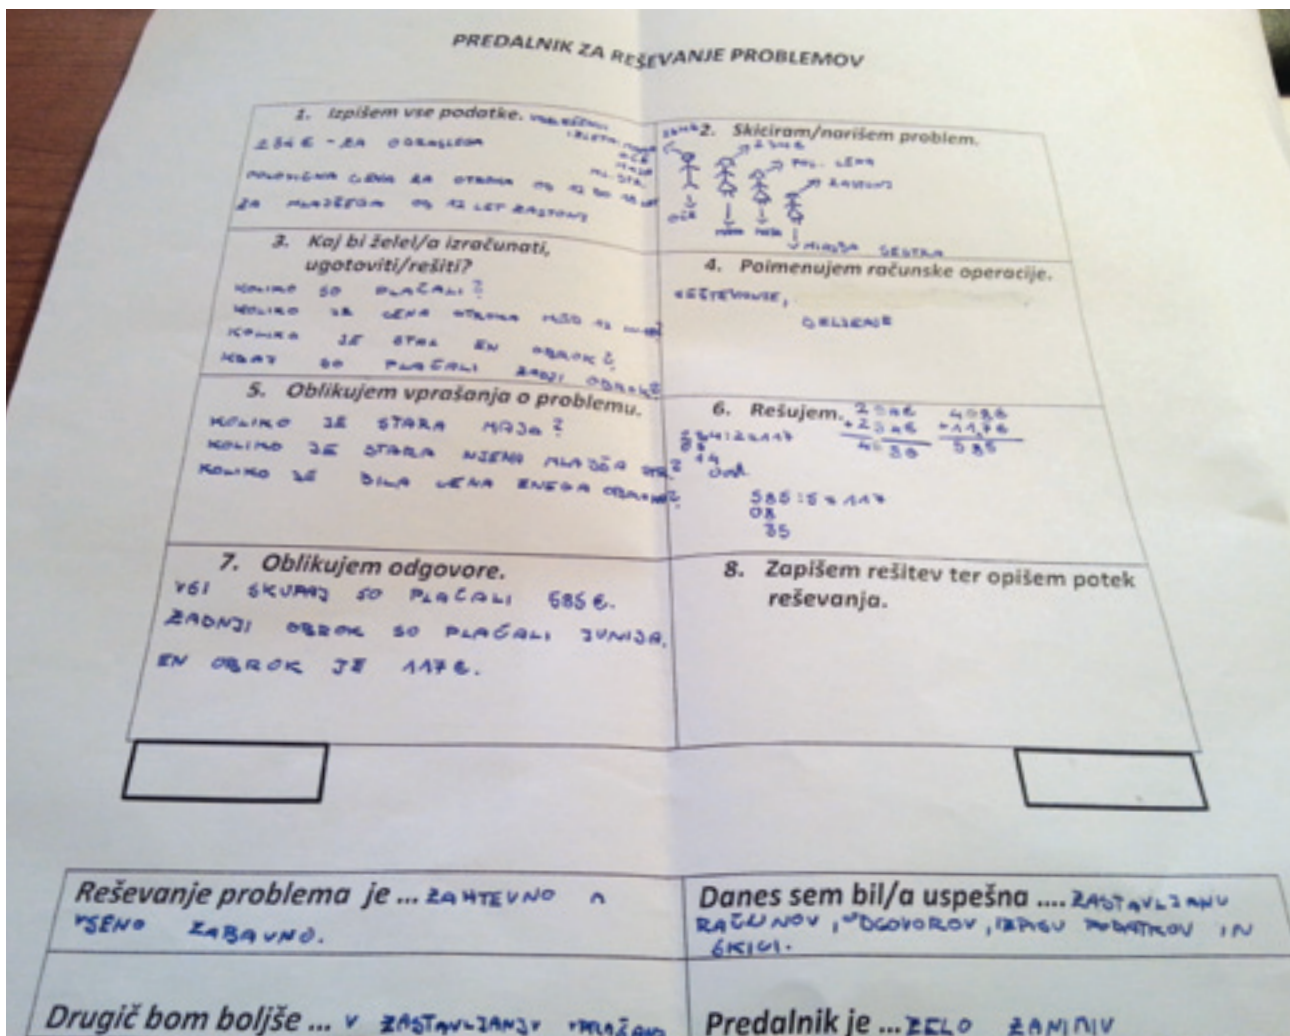 PREDALNIK ZA REŠEVANJE PROBLEMOV
1. Izpišem vse podatke.
234 € - ZA ODRASLEGA
POLOVIČNA CENA ZA OTROKA OD 12 DO 18 LET
ZA MLAJŠEGA OD 12 LET ZASTONJ
2. Skiciram/narišem problem.
234 €
POL. CENA
ZASTONJ
OČE
MAMA MAJA
MLAJŠA SESTRA
3. Kaj bi želel/a izračunati,
ugotoviti/rešiti?
KOLIKO SO PLAČALI?
KOLIKO JE CENA OTROKA
KOLIKO JE STAL EN OBROK?
KDAJ SO PLAČALI ZADJI OBROK?
4. Poimenujem računske operacije.
SEŠTEVANJE,
DELJENJE
5. Oblikujem vprašanja o problemu.
KOLIKO JE STARA MAJA?
KOLIKO JE STARA NJENA MLAJŠA
KOLIKO JE BILA CENA ENEGA OBROKA?
6. Rešujem.
234€
+234€
+117€
585
234:2=117
14
585:5=117
08
35
7. Oblikujem odgovore.
VSI SKUPAJ SO PLAČALI 585 €.
ZADNJI OBROK SO PLAČALI JUNIJA.
EN OBROK JE 117 €.
8. Zapišem rešitev ter opišem potek
reševanja.
Reševanje problema je ... ZAHTEVNO A
VSENO ZABAVNO.
Danes sem bil/a uspešna .... ZASTAVLJANJU
RAČUNOV, ODGOVOROV, IZPISU PODATKOV IN
SKICI.
Drugič bom boljše ... V ZASTAVLJANJU
Predalnik je ... ZELO ZANIMIV